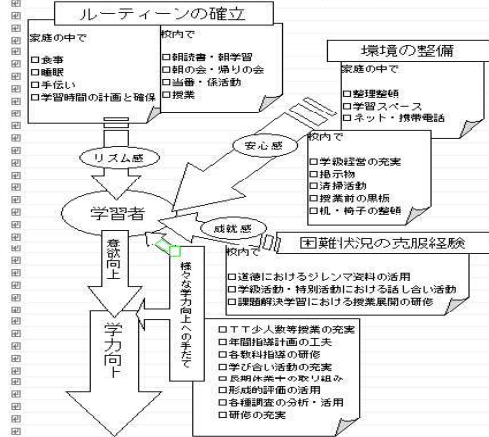 ルーティーンの確立
家庭の中で
□食事
□睡眠
□手伝い
□学習時間の計画と確保
校内で
□朝読書・朝学習
□朝の会・帰りの会
□当番・係活動
□授業
環境の整備
家庭の中で
□整理整頓
□学習スペース
□ネット・携帯電話
校内で
□学級経営の充実
□掲示物
□清掃活動
□授業前の黒板
□机・椅子の整頓
リズム感
安心感
学習者
成就感
困難状況の克服経験
校内で
□道徳におけるジレンマ資料の活用
□学級活動・特別活動における話し合い活動
□課題解決学習における授業展開の研修
意欲向上
様々な学力向上への手だて
学力向上
□TT少人数等授業の充実
□年間指導計画の工夫
□各教科指導の研修
□学び合い活動の充実
□長期休業中の取り組み
□形成的評価の活用
□各種調査の分析・活用
□研修の充実